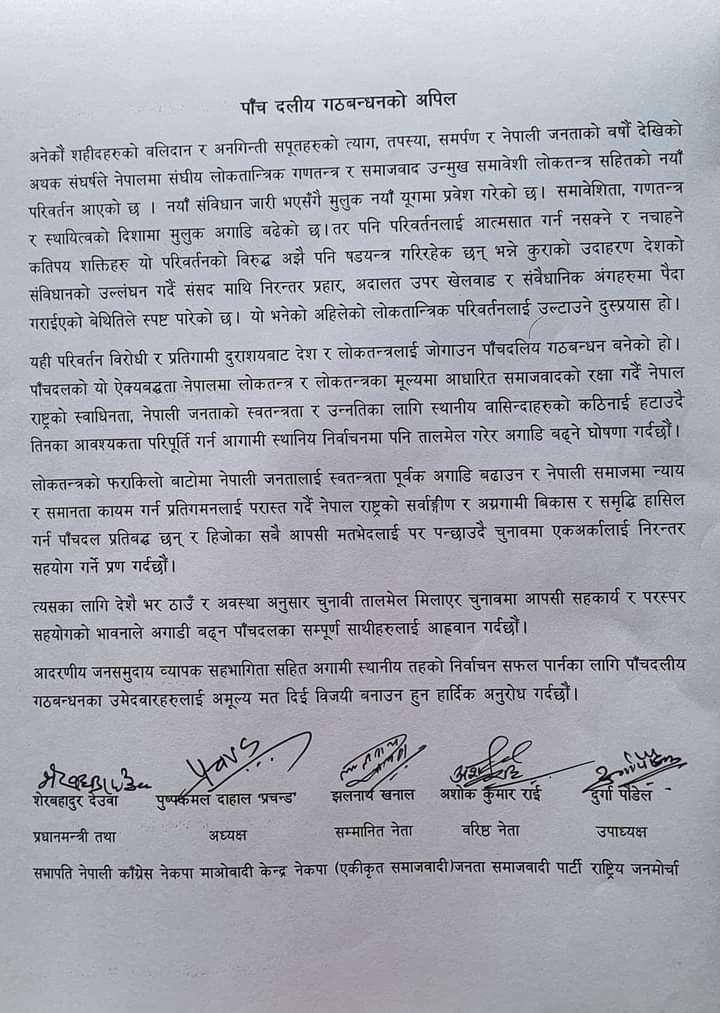 पाँच दलीय गठबन्धनको अपिल
अनेकौं शहीदहरुको वलिदान र अनगिन्ती सपूतहरुको त्याग, तपस्या, समर्पण र नेपाली जनताको वर्षौं देखिको
अथक संघर्षले नेपालमा संघीय लोकतान्त्रिक गणतन्त्र र समाजवाद उन्मुख समावेशी लोकतन्त्र सहितको नयाँ
परिवर्तन आएको छ । नयाँ संविधान जारी भएसँगै मुलुक नयाँ यूगमा प्रवेश गरेको छ। समावेशिता, गणतन्त्र
र स्थायित्वको दिशामा मुलुक अगाडि बढेको छ।तर पनि परिवर्तनलाई आत्मसात गर्न नसक्ने र नचाहने
कतिपय शक्तिहरु यो परिवर्तनको विरुद्ध अझै पनि षडयन्त्र गरिरहेक छन् भन्ने कुराको उदाहरण देशको
संविधानको उल्लंघन गर्दै संसद माथि निरन्तर प्रहार, अदालत उपर खेलवाड र संवैधानिक अंगहरुमा पैदा
गराईएको बेथितिले स्पष्ट पारेको छ। यो भनेको अहिलेको लोकतान्त्रिक परिवर्तनलाई उल्टाउने दुस्प्रयास हो।
यही परिवर्तन विरोधी र प्रतिगामी दुराशयबाट देश र लोकतन्त्रलाई जोगाउन पाँचदलिय गठबन्धन बनेको हो।
पाँचदलको यो ऐक्यबद्धता नेपालमा लोकतन्त्र र लोकतन्त्रका मूल्यमा आधारित समाजवादको रक्षा गर्दै नेपाल
राष्ट्रको स्वाधिनता, नेपाली जनताको स्वतन्त्रता र उन्नतिका लागि स्थानीय वासिन्दाहरुको कठिनाई हटाउदै
तिनका आवश्यकता परिपूर्ति गर्न आगामी स्थानिय निर्वाचनमा पनि तालमेल गरेर अगाडि बढ्ने घोषणा गर्दछौं।
लोकतन्त्रको फराकिलो बाटोमा नेपाली जनतालाई स्वतन्त्रता पूर्वक अगाडि बढाउन र नेपाली समाजमा न्याय
र समानता कायम गर्न प्रतिगमनलाई परास्त गर्दै नेपाल राष्ट्रको सर्वाङ्गीण र अग्रगामी बिकास र समृद्धि हासिल
गर्न पाँचदल प्रतिबद्ध छन् र हिजोका सबै आपसी मतभेदलाई पर पन्छाउदै चुनावमा एकअर्कालाई निरन्तर
सहयोग गर्ने प्रण गर्दछौं।
त्यसका लागि देशै भर ठाउँ र अवस्था अनुसार चुनावी तालमेल मिलाएर चुनावमा आपसी सहकार्य र परस्पर
सहयोगको भावनाले अगाडी बढ्न पाँचदलका सम्पूर्ण साथीहरुलाई आह्रवान गर्दछौं।
आदरणीय जनसमुदाय व्यापक सहभागिता सहित अगामी स्थानीय तहको निर्वाचन सफल पार्नका लागि पाँचदलीय
गठबन्धनका उमेदवारहरुलाई अमूल्य मत दिई विजयी वनाउन हुन हार्दिक अनुरोध गर्दछौं।
शेरबहादुर देउवा पुष्पकमल दाहाल 'प्रचन्ड' झलनाथ खनाल अशोक कुमार राई दुर्गा पौडेल
प्रधानमन्त्री तथा अध्यक्ष सम्मानित नेता वरिष्ठ नेता उपाध्यक्ष
सभापति नेपाली काँग्रेस नेकपा माओवादी केन्द्र नेकपा (एकीकृत समाजवादी)जनता समाजवादी पार्टी राष्ट्रिय जनमोर्चा